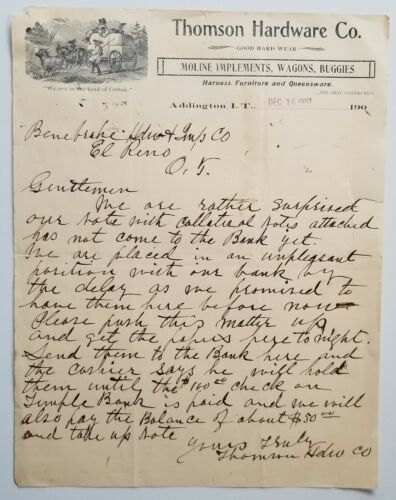 Thomson Hardware Co.
GOOD HARD WEAR
MOLINE IMPLEMENTS, WAGONS, BUGGIES
Harness, Furniture and Queensware.
"We are in the land of Cotton."
Addington, I. T., DEC 16 1907 190
Benebrake Hdw & Imp Co
El Reno
O. T.
Gentlemen
We are rather surprised
our note with collateral notes attached
has not come to the Bank yet.
We are placed in an unpleasant
position with our bank by
the delay as we promised to
have them here before now
Please push this matter up
and get the papers here to night.
Send them to the Bank here and
the cashier says he will hold
them until the $100.00 check on
Temple Bank is paid and we will
also pay the Balance of about $50.00
and take up note
Yours Truly
Thomson Hdw Co